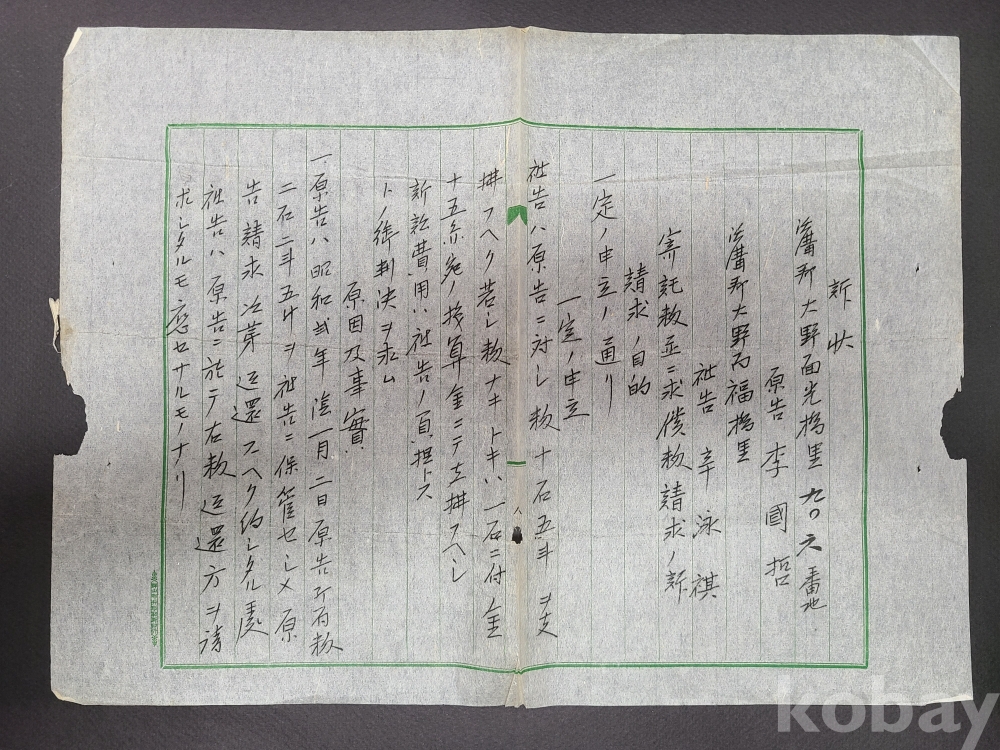 訴狀
靈光郡大野面光揚里九〇六番地
原告 李國哲
靈光郡大野面福揚里
被告 辛泳祺
寄託籾並ニ求償籾請求ノ訴
請求ノ目的
一定ノ申立ノ通リ
一定ノ申立
被告ハ原告ニ対シ籾十石五斗ヲ支
拂フヘク若シ籾ナキトキハ一石ニ付金
十五円宛ノ換算金ニテ支拂フヘシ
訴訟費用ハ被告ノ負担トス
トノ御判決ヲ求ム
原因及事實
一、原告ハ昭和貳年陰一月二日原告所有籾
二石二斗五升ヲ被告ニ保管セシメ原
告請求次第返還スヘク約シタル處
被告ハ原告ニ於テ右籾返還方ヲ請
求シタルモ應セサルモノナリ
八
kobay